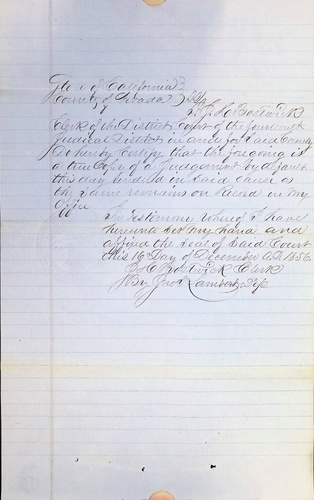 State of California }
County of Nevada } SS
I J. H. Bostwick
Clerk of the District Court of the fourteenth
Judicial District in and for said County
do hereby Certify that the foregoing is
a true Copy of a Judgement by default
this day rendered in said Cause as
the same remains on Record in my
Office
In testimony Whereof I have
hereunto set my hand and
affixed the Seal of Said Court
this 16 Day of December AD. 1856
Bostwick Clerk
By Jno Lambert Dep